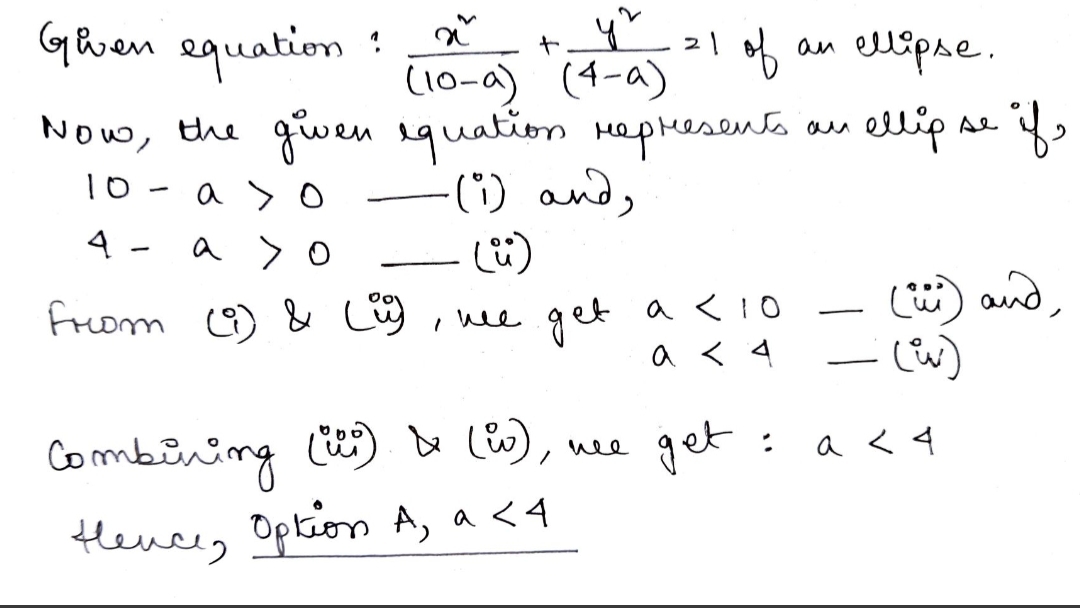 Given equation : x²/(10-a) + y²/(4-a) = 1 of an ellipse.
Now, the given equation represents an ellipse if,
10 - a > 0 —(i) and,
4 - a > 0 —(ii)
From (i) & (ii), we get a < 10 — (iii) and,
a < 4 — (iv)
Combining (iii) & (iv), we get : a < 4
Hence, Option A, a < 4